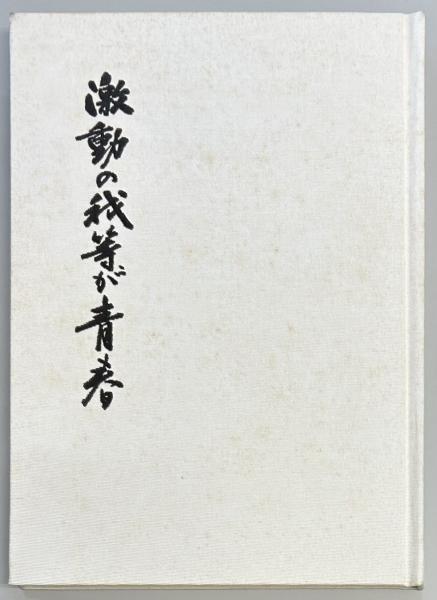 激動の我等が青春